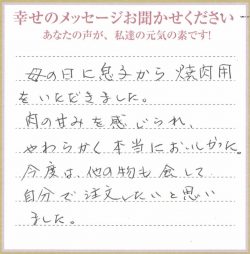 幸せのメッセージお聞かせください
あなたの声が、私達の元気の素です!
母の日に息子から焼肉用
をいただきました。
肉の甘みを感じられ、
やわらかく本当においしかった。
今度は、他の物も食して
自分で注文したいと思い
ました。